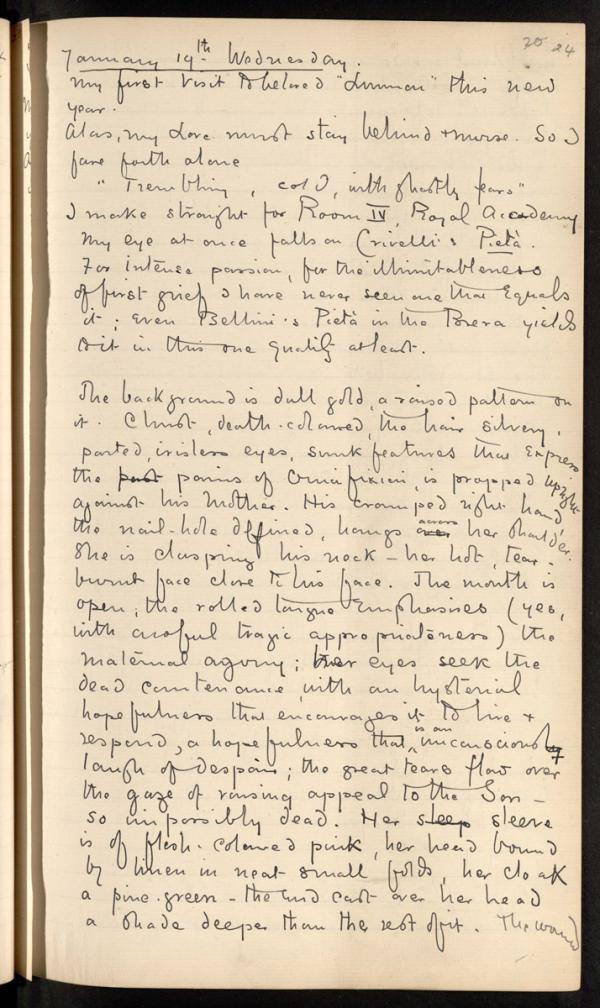 20 24
January 19th Wednesday.
My first visit to beloved "Lunnon" this new
year.
Alas, my Love must stay behind & nurse. So I
fare forth alone
"Trembling, cold, with ghastly fears"
I make straight for Room IV, Royal Academy
My eye at once falls on Crivelli's Pietà.
For intense passion, for the illimitableness
of first grief I have never seen one that Equals
it; even Bellini's Pietà in the Brera yields
to it in this one quality at least.
The background is dull gold, a raised pattern on
it. Christ, death-coloured, the hair silvery,
parted, irisless eyes, sunk features that Express
the past pains of Crucifixion, is propped upright
against his Mother. His cramped right hand,
the nail-hole defined, hangs over across her shoulder.
She is clasping his neck – her hot, tear-
burnt face close to his face. The mouth is
open, the rolled tongue Emphasises (yes,
with awful tragic appropriateness) the
maternal agony; her eyes seek the
dead countenance with an hysterial
hopefulness that encourages it to live &
respond, a hopefulness that is an unconscious
laugh of despair; the great tears flow over
the gaze of raising appeal to the Son –
so impossibly dead. Her sleep sleeve
is of flesh-coloured pink, her head bound
by linen in neat small folds, her cloak
a pine-green – the end cast over her head
a shade deeper than the rest of it. The wound